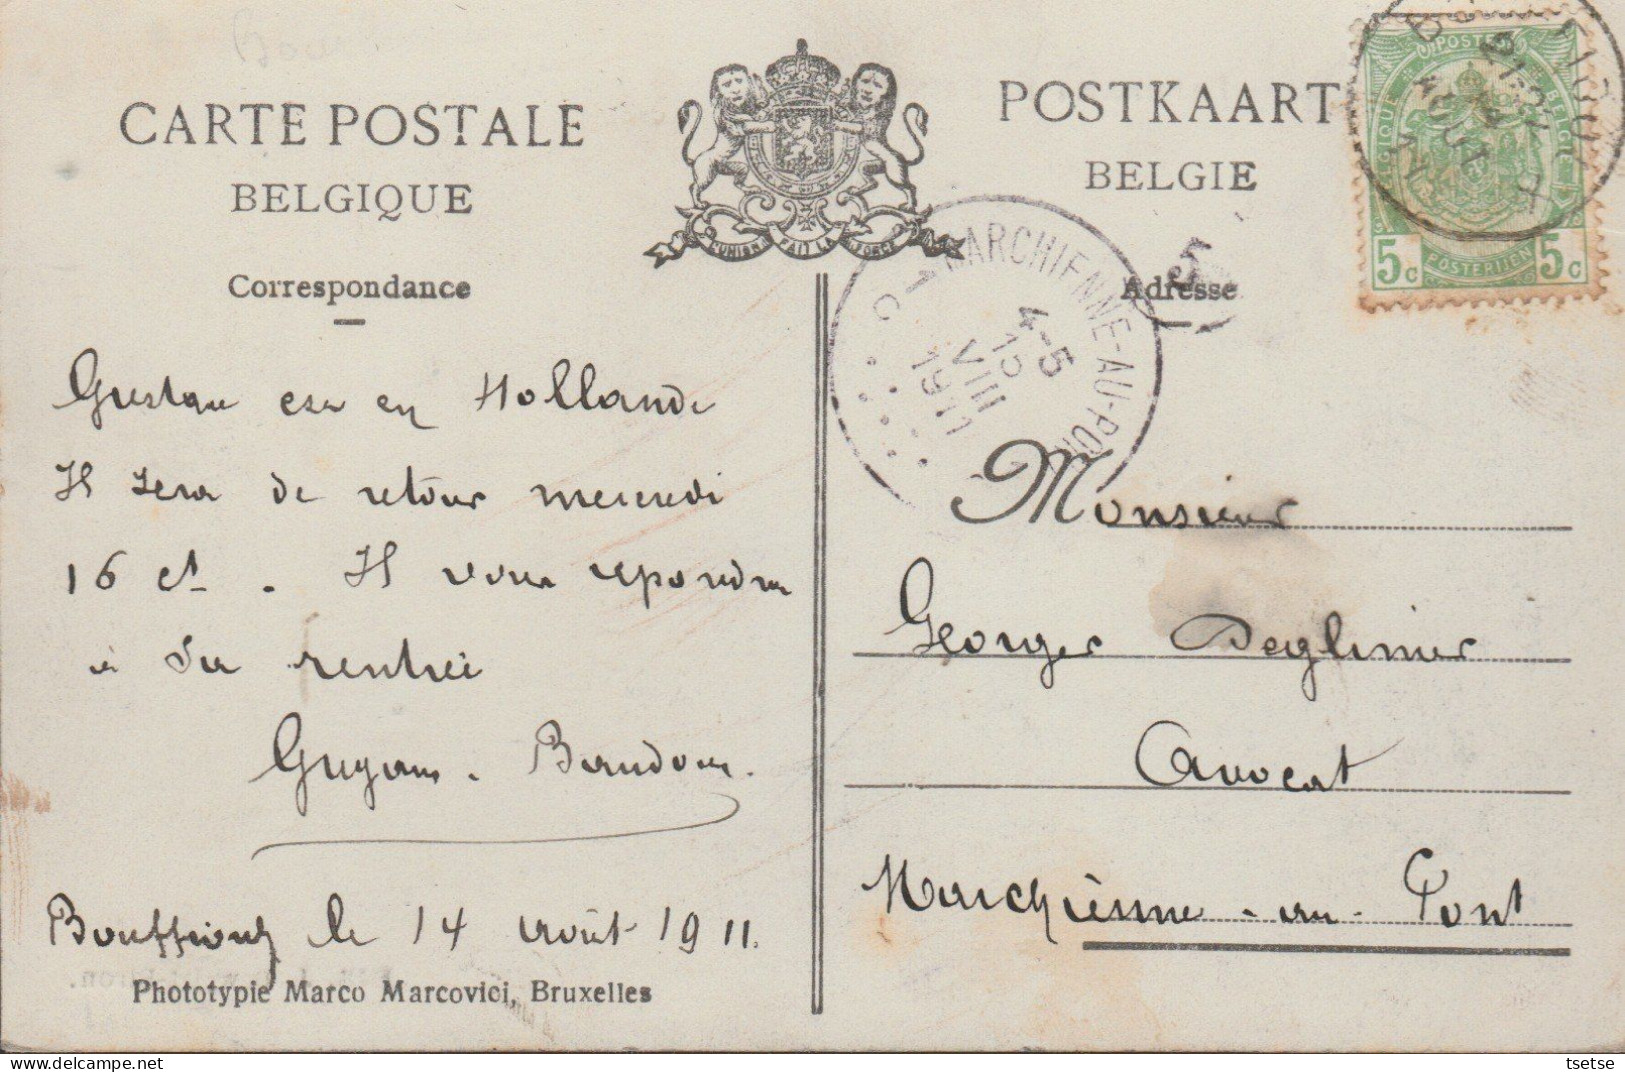 CARTE POSTALE
BELGIQUE
POSTKAART
BELGIE
L'UNION FAIT LA FORCE
POSTES
BELGIQUE
BELGIË
5c POSTERIJEN 5c
AOUT
Correspondance
Adresse
5
1 MARCHIENNE-AU-PONT
C
4-5
15
VIII
1911
Gustave est en Hollande
Il sera de retour mercredi
16 ct. Il vous repondra
à sa rentrée
Baudoux.
Bouffioulx le 14 août 1911.
Phototypie Marco Marcovici, Bruxelles
Monsieur
Georges Deglimes
Avocat
Marchienne-au-Pont
tsetse